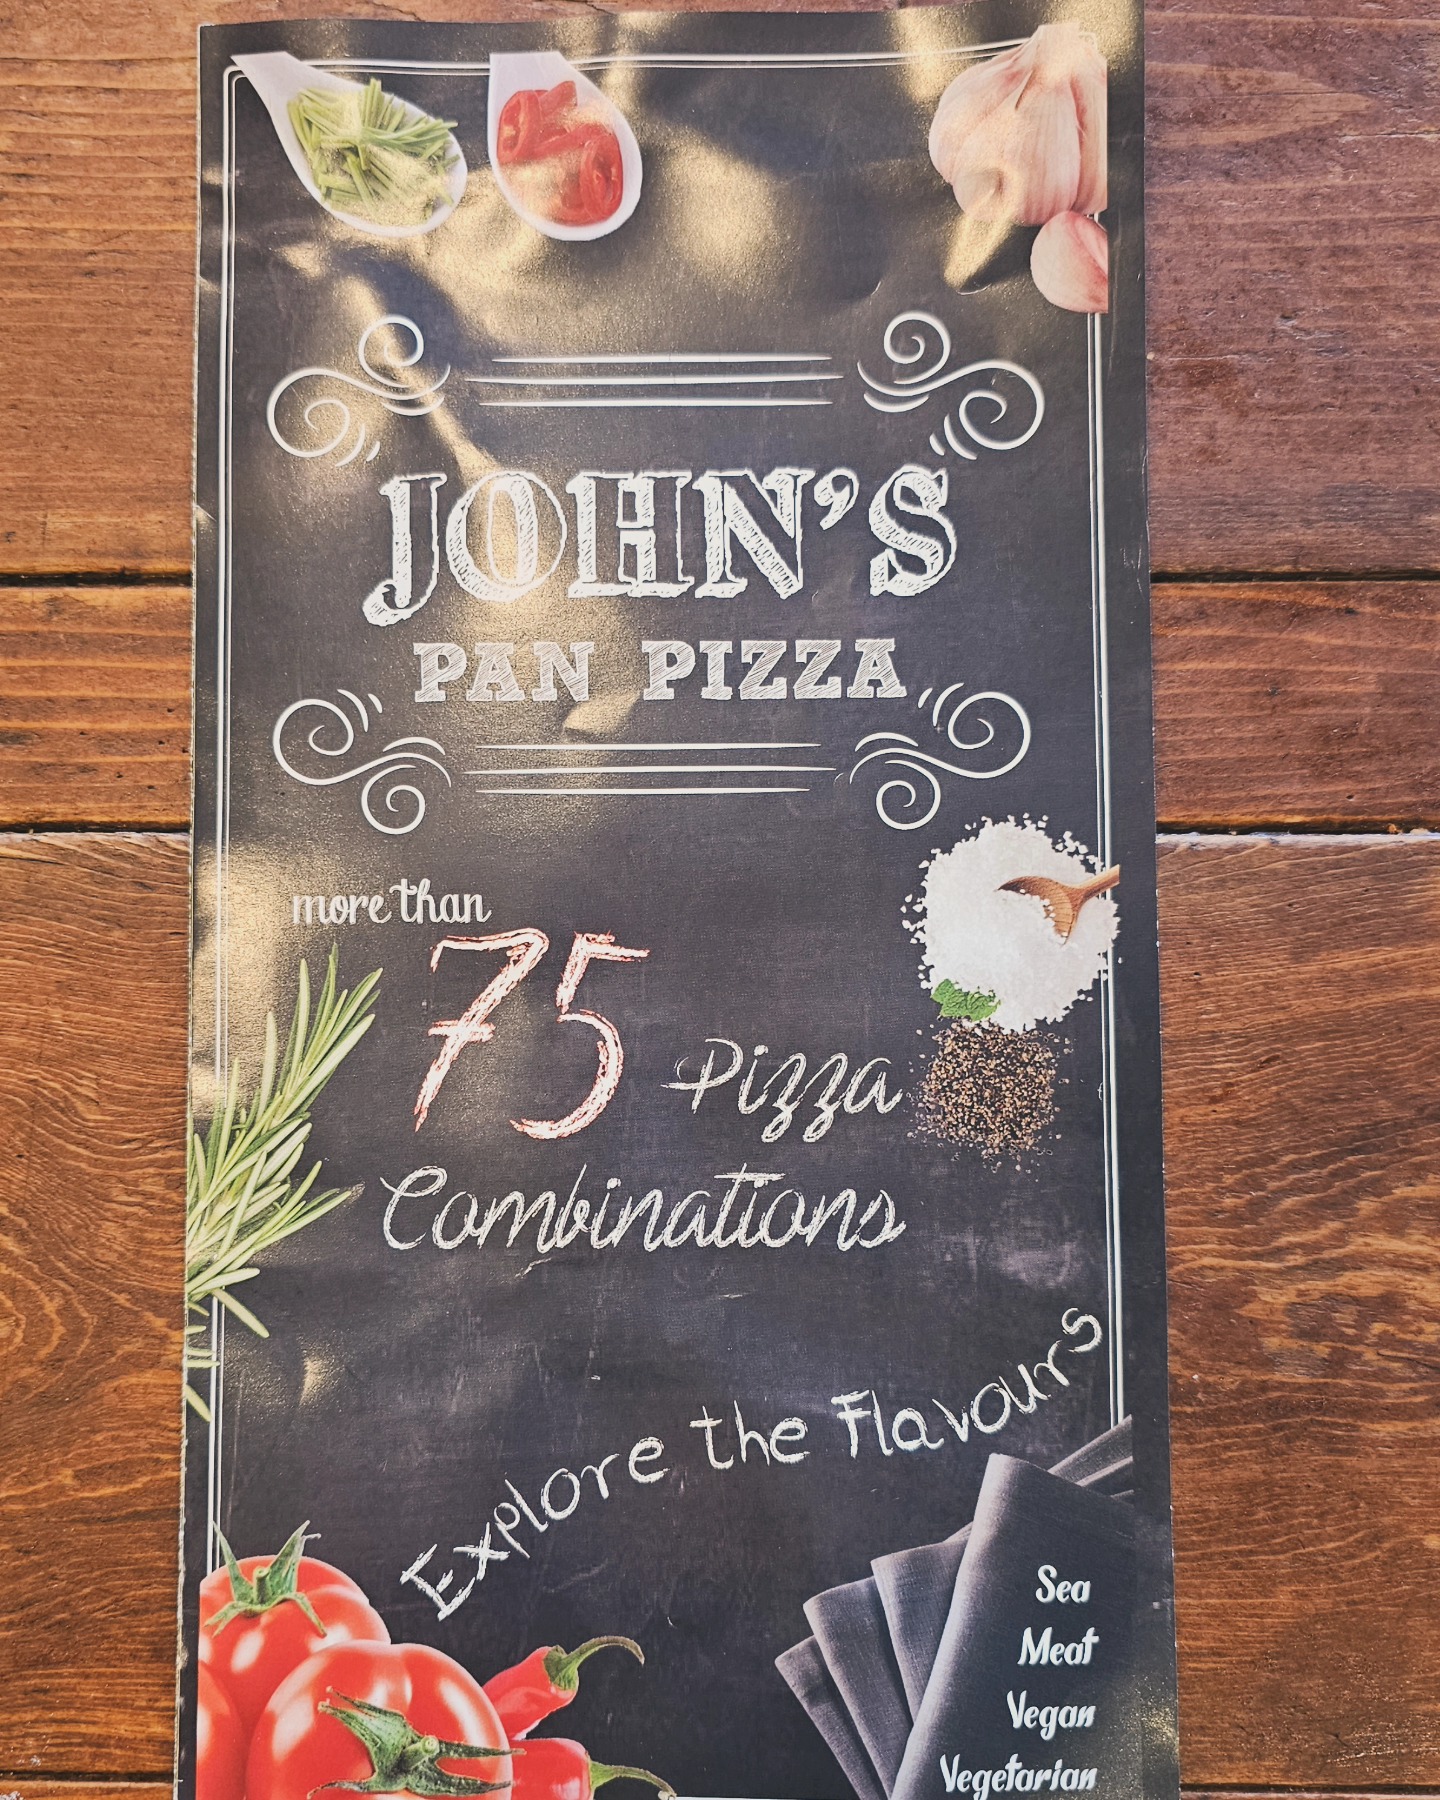 JOHN'S
PAN PIZZA
more than
75 Pizza
Combinations
Explore the Flavours
Sea
Meat
Vegan
Vegetarian